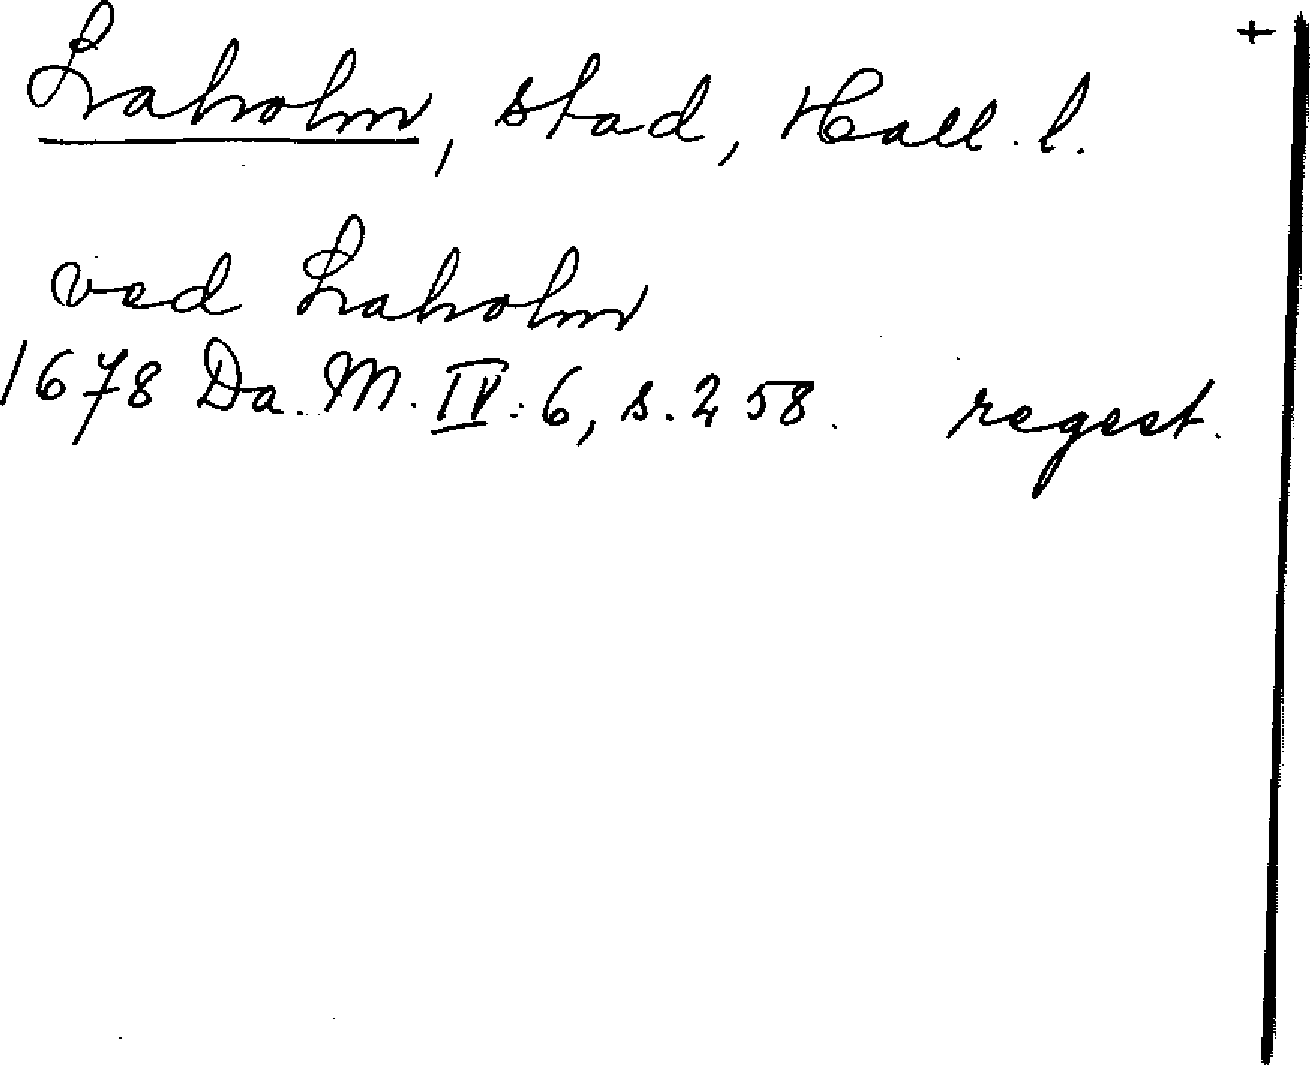 +
Laholm, stad, Hall. l.
ved Laholm
1678 Da. M. IV: 6, s. 258. regest.